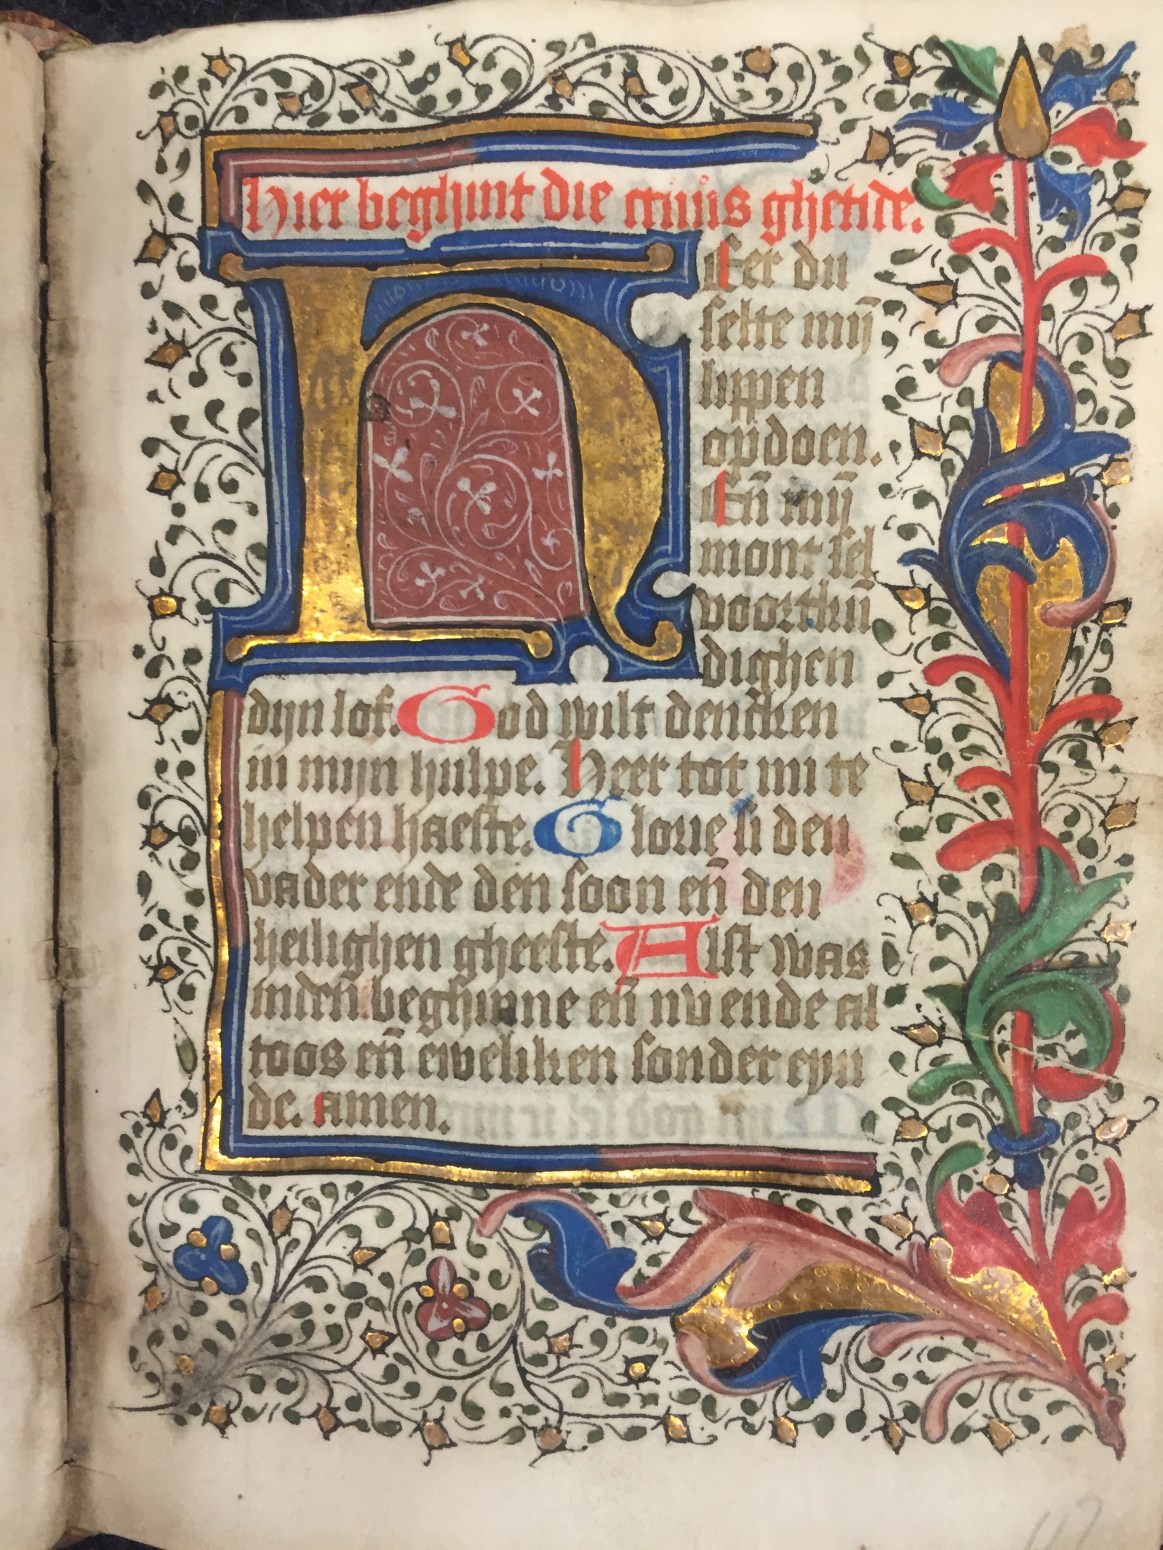 Hier beghint die cruus ghetide.
H Eer du
selte mijn̄
lippen
opdoen.
Eñ mijn̄
mont sel
voortkū
dighen
dijn lof. God wilt dencken
in mijn hulpe. Heer tot mi te
helpen haeste. Glorie si den
vader ende den soon eñ den
heilighen gheeste. Alst was
inden beghinne eñ nu ende al
toos eñ eweliken sonder eyn
de. amen.